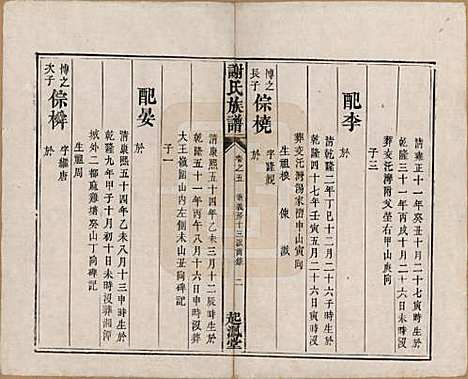 配李
清雍正十一年癸丑十月二十七寅時生於
乾隆三十一年丙戌十月二十六日未時沒
葬安沱灣附叐墳右甲山庚向
子三
博之長子
倧橈
字隆
於
乾隆二年丁巳十二月二十六子時生於
乾隆四十七年壬寅五月二十六日寅時沒
葬安沱灣湯家塘申山寅向
生祖模
謝氏族譜
卷之五
十三派
二
起鳳堂
清康熙五十四年乙未八月十二辰時生於
乾隆五十一年丙午八月十六日申時沒葬
大王嶺園山內左側辛山丑向碑記
子一
配晏
清康熙五十四年乙未八月十三申時生於
乾隆九年甲子十月初十日未時沒葬湘潭
城外二都麻雞塘癸山丁向碑記
生祖周
博之次子
倧檡
字繼唐
於